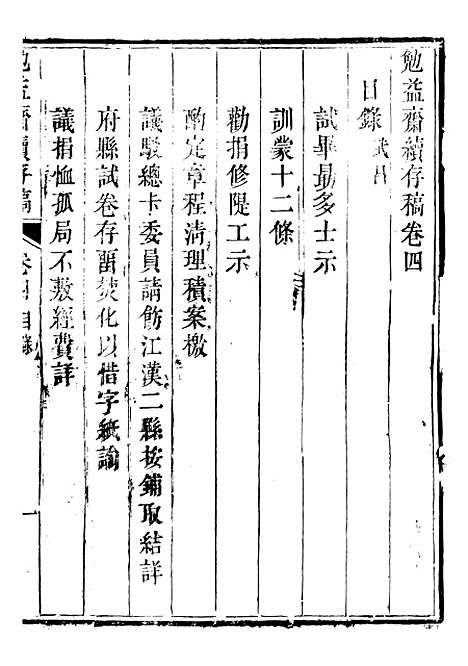 勉益齋續存稿卷四
目錄 武昌
試畢勗多士示
訓蒙十二條
勸捐修隄工示
酌定章程清理積案檄
議駁總卡委員請飭江漢二縣按鋪取結詳
府縣試卷存留焚化以惜字紙諭
議捐恤孤局不敷經費詳
勉益齋續存稿 卷四 目錄 一